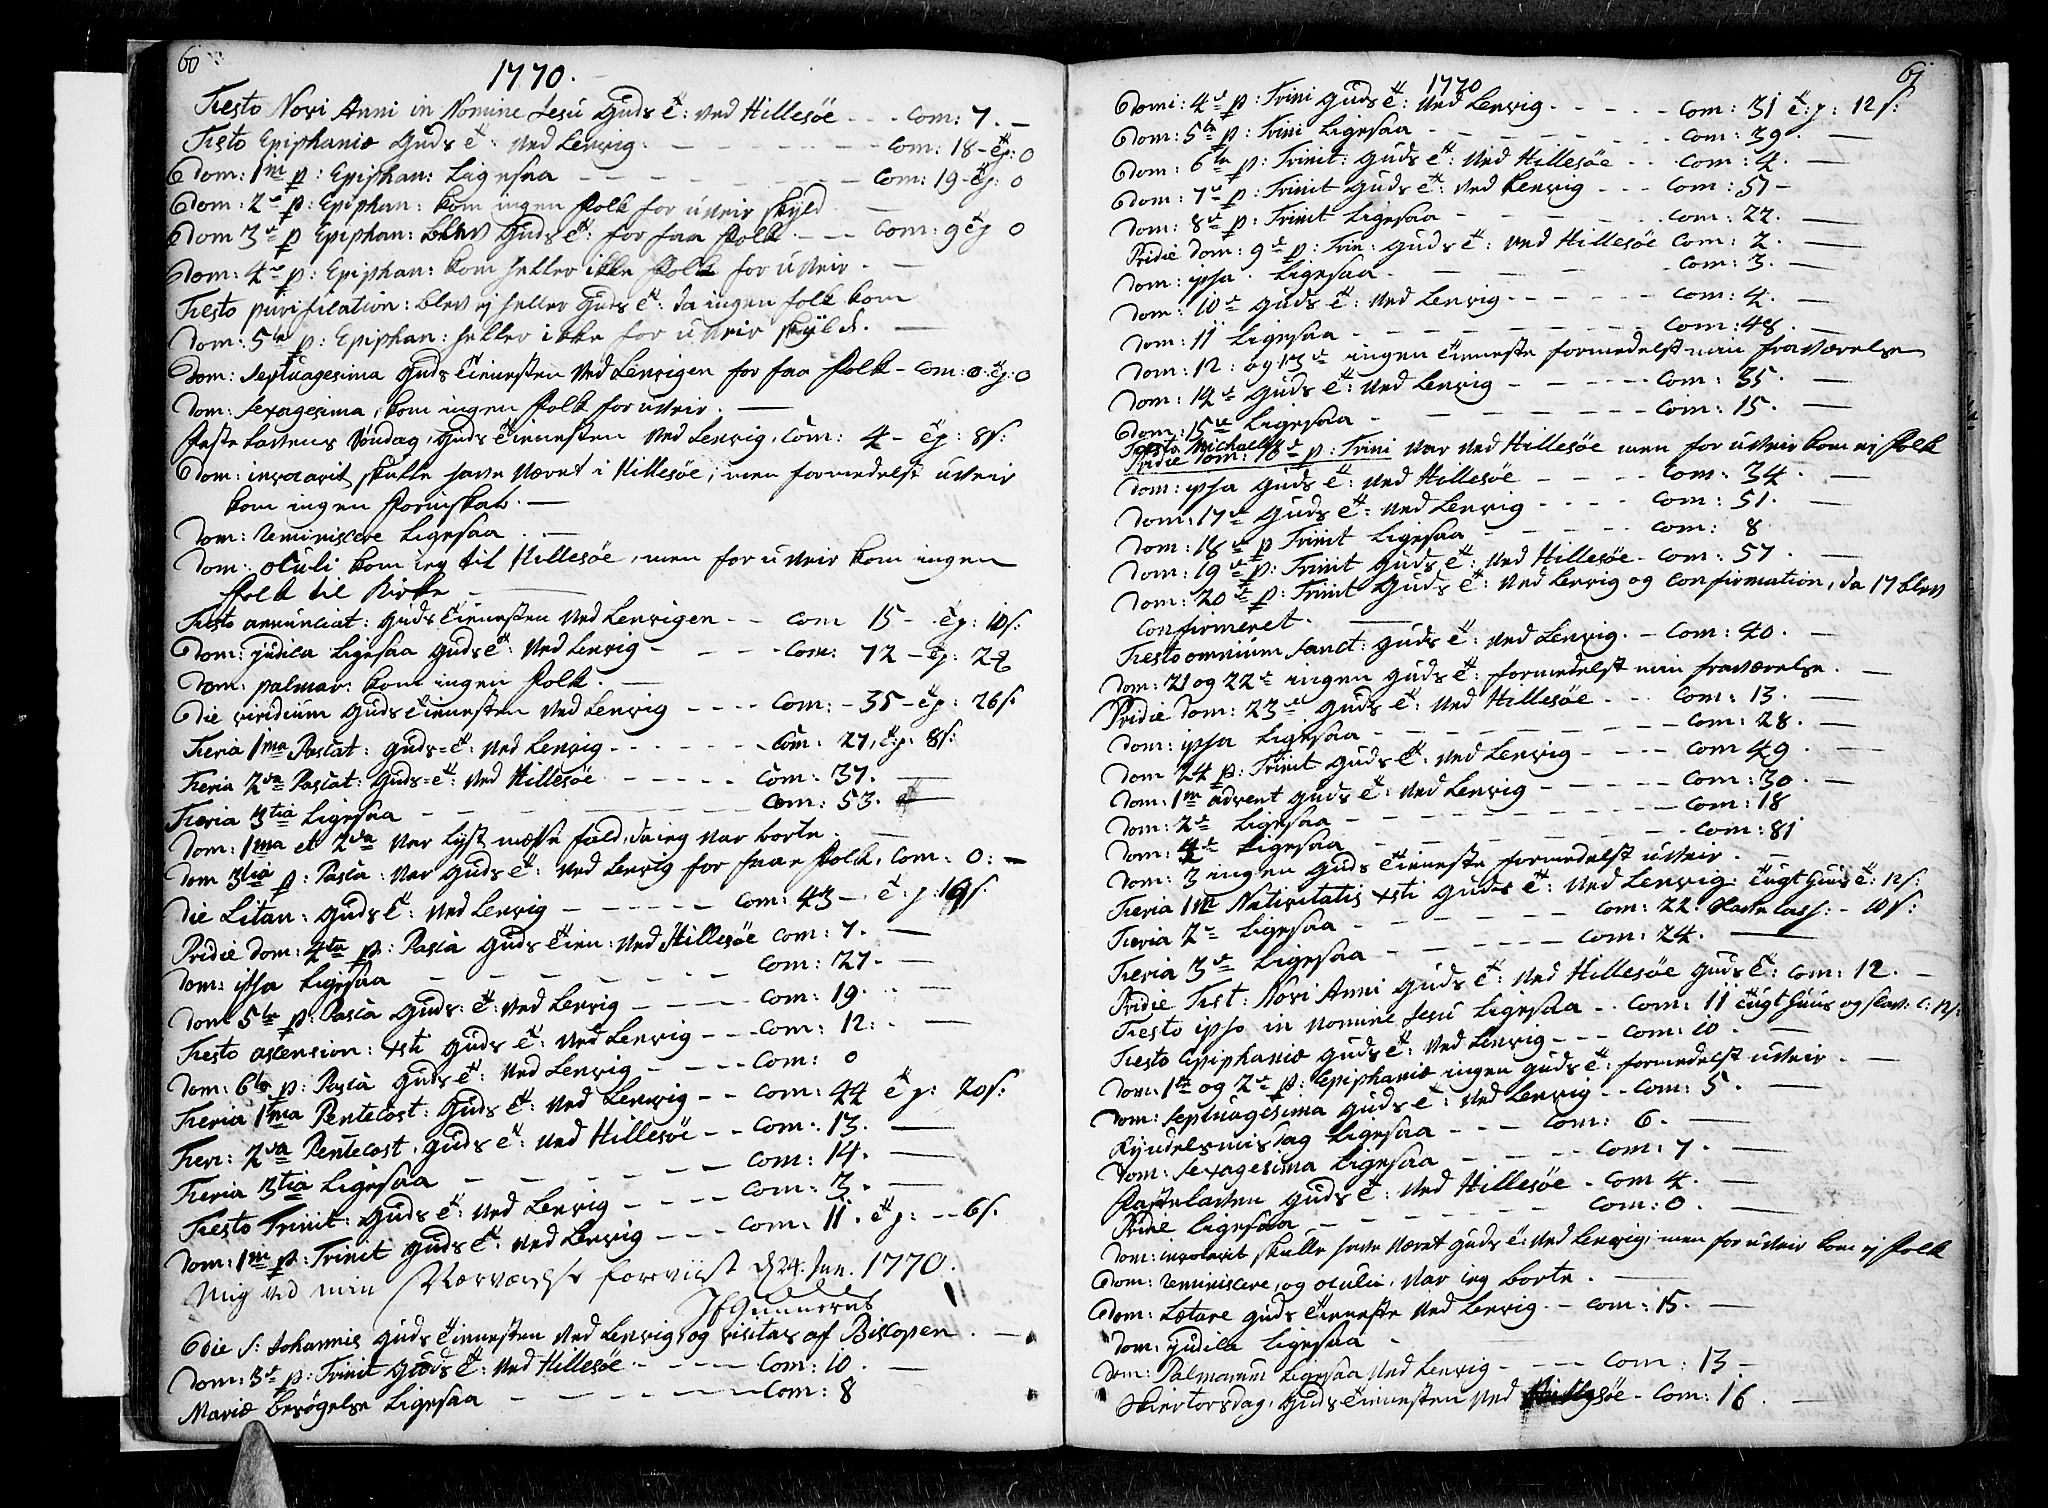 60
1770.
Festo Novi Anni in Nomine Jesu Guds t: ved Hillesöe - - - Com: 7. -
Festo Epiphaniæ Guds t: ved Lenvig. - - - Com: 18 - t: 0
Dom: 1m p: Epiphan: Ligesaa - - - Com: 19 - t: 0
Dom: 2de p: Epiphan: kom ingen folk for uveir skyld -
Dom 3de p Epiphan: blev Guds t: for faa folk - - Com: 9 0
Dom: 4de p: Epiphan: kom heller ikke folk for uveir. -
Festo purification: blev ej heller Guds t: da ingen folk kom
Dom: 5te p: Epiphan: heller ikke for uveir skÿld. -
Dom: Septuagesima Guds tienesten ved Lenvigen for faa folk - Com: 0. 0
Dom: Sexagesima, kom ingen folk for uveir. -
Faste Lavens Söndag, Guds tienesten ved Lenvig, Com: 4 - 8 s:
Dom: invocavit skulle have været i Hillesöe, men formedelst uveir
kom ingen formskab. -
Dom: Reminiscere Ligesaa. -
Dom: Oculi kom jeg til Hillesöe, men for uveir kom ingen
folk til Kirke -
Festo annunciat: Guds tienesten ved Lenvigen - - Com 15 - 10 s:
Dom: judica Ligesaa Guds t: ved Lenvig - - - Com: 72 -
Dom: palmar: kom ingen folk. -
Die viridium Guds tienesten ved Lenvig - - - - Com: - 35 - 26 s.
Feria 1ma Pascat: Guds=t: ved Lenvig - - - - Com: 27, 8 s:
Feria 2da Pascat: Guds=t: ved Hillesöe - - - - Com: 37. -
Feria 3tia Ligesaa - - - - Com: 53. -
Dom: 1ma et 2da var Lyst messe fald, da jeg var borte. -
Dom 3tia p: Pasca: var Guds t: ved Lenvig for faae folk, Com: 0: -
Die Litan: Guds t: ved Lenvig - - - - Com: 43 - s:
Pridie Dom: 4ta p: Pasca Guds tien: ved Hillesöe Com: 7. -
Dom: ipsa Ligesaa - - - - Com: 27. -
Dom 5te p: Pasca Guds: t: ved Lenvig - - - - Com: 19. -
Festo ascension: xsti Guds t: ved Lenvig - - Com: 12: -
Dom: 6te p: Pasca Guds t: ved Lenvig - - - - Com: 0
Feria 1ma Pentecost: Guds t: ved Lenvig - - Com: 44 20 s:
Feri: 2da Pentecost. Guds t: ved Hillesöe - - Com: 13. -
Feria 3tia Ligesaa - - - - Com: 14. -
Festo Trinit: Guds t: ved Lenvig - - - - Com: 3. -
Dom: 1m p: Trinit Guds t: ved Lenvig - - - Com: 11. - - 6 s.
Mig ved min Nærværelse foreviist d 24. Jun. 1770.
JfGunnerus
Die S: Johannis Guds tienesten ved Lenvig og visitas af Biskopen. -
Dom: 3de p: Trinit Guds t: ved Hillesöe - - - - Com: 10. -
Mariæ besögelse Ligesaa - - - - Com: 8
61
1770
Domi: 4de p: Trini Guds t: ved Lenvig - - - - Com: 31 12 s:
Dom: 5te p: Trini Ligesaa - - - - Com: 39. -
Dom: 6te p: Trinit: Guds t: ved Hillesöe - - Com: 4. -
Dom: 7de p: Trinit Guds t: ved Lenvig - - - Com: 57 -
Dom: 8de p: Trinit Ligesaa - - - - Com: 22. -
Pridie Dom: 9de p: Trin: Guds t: ved Hillesöe Com: 2. -
Dom: ipsa. Ligesaa. - - - - Com: 3. -
Dom: 10de Guds t: ved Lenvig - - - - Com: 4. -
Dom: 11 Ligesaa - - - - Com: 48. -
Dom: 12: og 13de ingen tieneste formedelst min fraværelse
Dom: 14de Guds t: ved Lenvig - - - - Com: 35. -
Dom: 15de Ligesaa - - - - Com: 15. -
Festo Michaelis
Pridie Dom: 16de p: Trini var ved Hillesöe men for uveir kom ej folk
Dom: ipsa Guds t: ved Hillesöe - - - - Com: 34. -
Dom: 17de Guds t: ved Lenvig - - - - Com: 51. -
Dom: 18de p Trinit Ligesaa - - - - Com: 8
Dom: 19de p: Trinit Guds t: ved Hillesöe - Com: 57. -
Dom: 20de p: Trinit Guds t: ved Lenvig og Confirmation, da 17 blev
Confirmeret. -
Festo omnium Sanct: Guds t: ved Lenvig. - Com: 40. -
Dom: 21 og 22de ingen Guds t: formedelst min fraværelse. -
Pridie Dom: 23de Guds t: ved Hillesöe - - - Com: 13. -
Dom: ipsa Ligesaa - - - - Com: 28. -
Dom 24 p: Trinit Guds t: ved Lenvig - - - - Com 49. -
Dom: 1m advent Guds t: ved Lenvig - - - - Com: 30. -
Dom: 2de Ligesaa - - - - Com: 18
Dom: 4de Ligesaa - - - - Com: 81
Dom: 3 ingen Guds tieneste formedelst uveir. -
Feria 1m Nativitatis xsti Guds t: ved Lenvig: tugt huus t: 12 s:
Feria 2de Ligesaa - - - - Com: 22. - 10 s:
Feria 3de Ligesaa - - - - Com: 24. -
Pridie Fest: Novi Anni Guds t: ved Hillesöe Guds t: Com: 12. -
Festo ipso in nomine Jesu Ligesaa - - Com: 11 tugt huus og slav: C: 12 s:
Festo Epiphaniæ Guds t: ved Lenvig - - - Com: 10. -
Dom: 1te og 2de p: Epiphaniæ ingen Guds t: formedelst uveir. -
Dom: Septuagesima Guds t: ved Lenvig - - Com: 5. -
Kyndelsmisdag Ligesaa - - - Com: 6. -
Dom: Sexagesima Ligesaa - - - - Com: 7. -
Fastelaven Guds t: ved Hillesöe - Com 4. -
Pridie Ligesaa - - - - Com: 0. -
Dom: invocavit skulle have været Guds t: ved Lenvig; men for uveir kom ej folk
Dom: Reminiscere, og Oculi, var jeg borte. -
Dom: Lætare Guds tieneste ved Lenvig. - Com: 15. -
Dom: judica Ligesaa -
Dom: Palmarum Ligesaa ved Lenvig - - - - Com: 13 -
Skiertorsdag, Guds tienesten ved Hillesöe - Com: 16. -